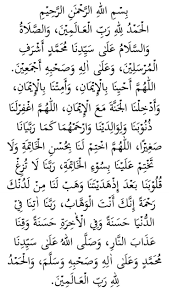 بِسْمِ اللهِ الرَّحْمٰنِ الرَّحِيْمِ
الْحَمْدُ لِلّٰهِ رَبِّ الْعَالَمِيْنَ، وَالصَّلَاةُ
وَالسَّلَامُ عَلَى سَيِّدِنَا مُحَمَّدٍ أَشْرَفِ
الْمُرْسَلِيْنَ، وَعَلَى اٰلِهِ وَصَحْبِهِ أَجْمَعِيْنَ.
اَللّٰهُمَّ أَحْيِنَا بِالْإِيْمَانِ، وَأَمِتْنَا بِالْإِيْمَانِ،
وَأَدْخِلْنَا الْجَنَّةَ مَعَ الْإِيْمَانِ، اَللّٰهُمَّ اغْفِرْلَنَا
ذُنُوْبَنَا وَلِوَالِدَيْنَا وَارْحَمْهُمَا كَمَا رَبَّيَانَا
صَغِيْرًا، اَللّٰهُمَّ اخْتِمْ لَنَا بِحُسْنِ الْخَاتِمَةِ وَلَا
تَخْتِمْ عَلَيْنَا بِسُوْءِ الْخَاتِمَةِ، رَبَّنَا لَا تُزِغْ
قُلُوْبَنَا بَعْدَ إِذْهَدَيْتَنَا وَهَبْ لَنَا مِنْ لَدُنْكَ
رَحْمَةً إِنَّكَ أَنْتَ الْوَهَّابُ، رَبَّنَا اٰتِنَا فِى
الدُّنْيَا حَسَنَةً وَفِى الْأٰخِرَةِ حَسَنَةً وَقِنَا
عَذَابَ النَّارِ، وَصَلَّى اللهُ عَلَى سَيِّدِنَا
مُحَمَّدٍ وَعَلَى اٰلِهِ وَصَحْبِهِ وَسَلَّمَ، وَالْحَمْدُ
لِلّٰهِ رَبِّ الْعَالَمِيْنَ.